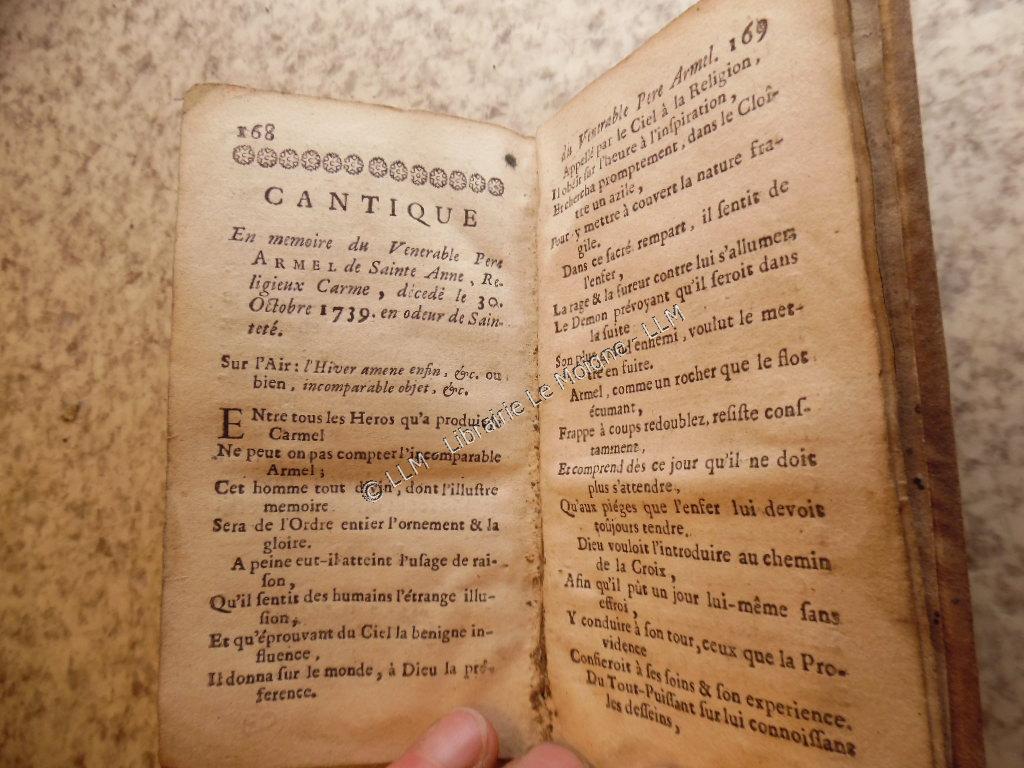 168
CANTIQUE
En memoire du Venerable Pere
ARMEL de Sainte Anne, Re-
ligieux Carme, décedé le 30.
Octobre 1739. en odeur de Sain-
teté.
Sur l'Air: l'Hiver amene enfin, &c. ou
bien, incomparable objet, &c.
ENtre tous les Heros qu'a produit
Carmel
Ne peut on pas compter l'incomparable
Armel;
Cet homme tout divin, dont l'illuſtre
memoire
Sera de l'Ordre entier l'ornement & la
gloire.
A peine eut-il atteint l'uſage de rai-
ſon,
Qu'il ſentit des humains l'étrange illu-
ſion,
Et qu'éprouvant du Ciel la benigne in-
fluence,
Il donna ſur le monde, à Dieu la pré-
ference.
du Venerable Pere Armel. 169
Appellé par le Ciel à la Religion,
Il obéit ſur l'heure à l'inſpiration,
Et chercha promptement, dans le Cloî-
tre un azile,
Pour y mettre à couvert la nature fra-
gile.
Dans ce ſacré rempart, il ſentit de
l'enfer,
La rage & la fureur contre lui s'allumer;
Le Demon prévoyant qu'il ſeroit dans
la ſuite
Son plus grand ennemi, voulut le met-
tre en fuite.
Armel, comme un rocher que le flot
écumant,
Frappe à coups redoublez, reſiſte conſ-
tamment,
Et comprend dès ce jour qu'il ne doit
plus s'attendre,
Qu'aux piéges que l'enfer lui devoit
toûjours tendre,
Dieu vouloit l'introduire au chemin
de la Croix,
Afin qu'il pût un jour lui-même ſans
effroi,
Y conduire à ſon tour, ceux que la Pro-
vidence
Confieroit à ſes ſoins & ſon experience.
Du Tout-Puiſſant ſur lui connoiſſant
les deſſeins,
© LLM - Librairie Le Moione - LLM